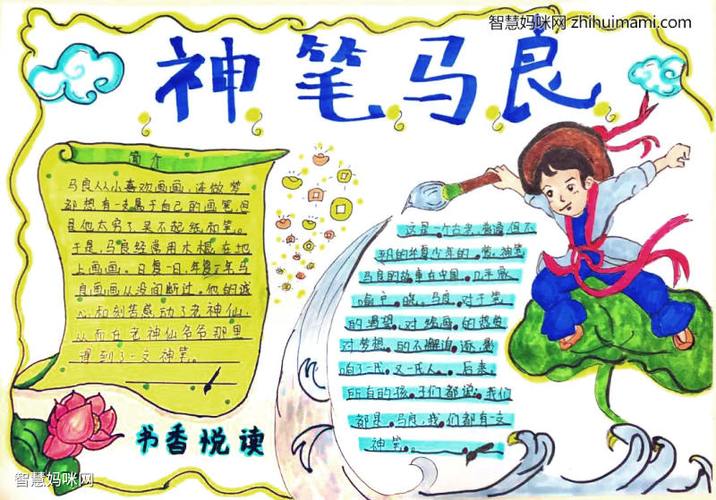 智慧妈咪网 zhihuimami.com
神笔马良
简介
马良从小喜欢画画,连做梦
都想有一支属于自己的画笔,但
是他太穷了,买不起纸和笔。
于是,马良经常用木棍在地
上画画。日复一日,年复一年,马
良画画从没间断过,他的诚
心和刻苦感动了老神仙,
从而在老神仙爷爷那里
得到了一支神笔。
这是一个古老,普通但不
的年少年的,神笔
马良的故事在中国,几乎家
喻户晓,马良,对于笔
的渴望,对绘画的热爱
对梦想,的不懈追逐,影
响了一代,又一代人,后来,
所有的孩子们都说:我们
都是马良,我们都有一支
神笔。
书香悦读
智慧妈咪网